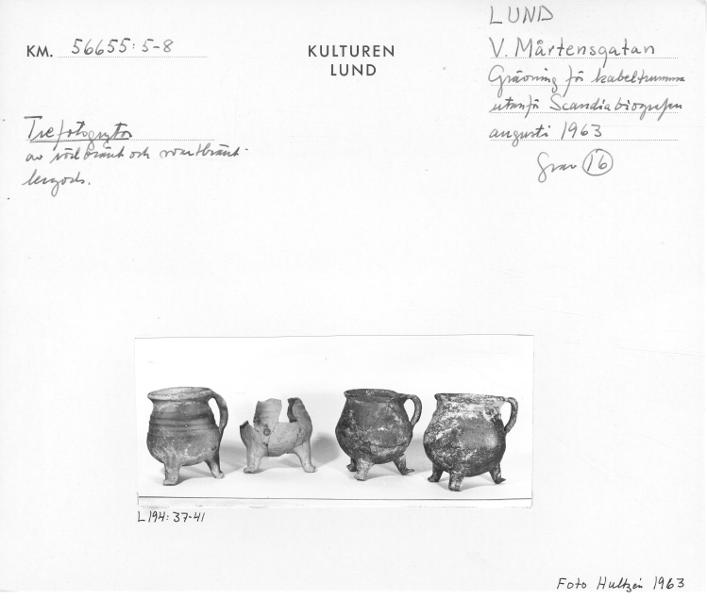 LUND
KM. 56655:5-8
KULTUREN
LUND
V. Mårtensgatan
Grävning för kabeltrumma
utanför Scandiabiografen
augusti 1963
Grav 16
Trefotsgrytor
av rödbränt och svartbränt
lergods.
L194:37-41
Foto Hultzén 1963